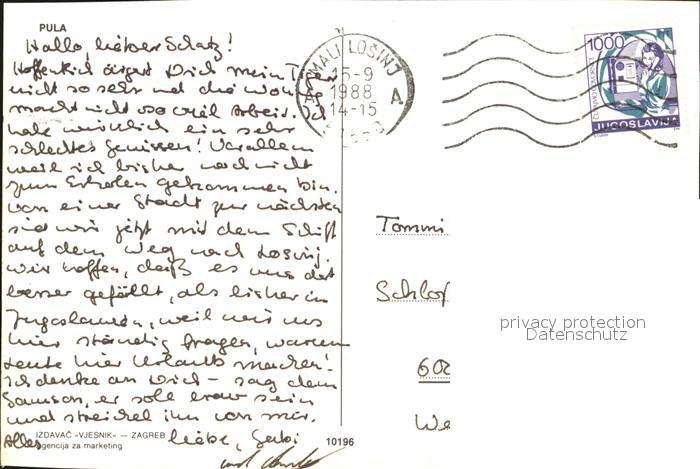 PULA
Hallo, lieber Schatz!
Hoffentlich ärgert Dich mein Tiger
nicht so sehr und die Wohnung
macht nicht so viel Arbeit. Ich
habe wirklich ein sehr
schlechtes Gewissen! Vor allem
weil ich bisher noch nicht
zum Erholen gekommen bin.
Von einer Stadt zur nächsten
sind wir jetzt mit dem Schiff
auf dem Weg nach Losinj.
Wir hoffen, daß es uns dort
besser gefällt, als bisher in
Jugoslawien, weil wir uns
hier ständig fragen, warum
Leute hier Urlaub machen!
Ich denke an Dich – sag dem
Samson, er soll brav sein
und streichel ihn von mir.
Alles liebe, Gabi
und
IZDAVAČ »VJESNIK« — ZAGREB
Agencija za marketing
10196
MALI LOŠINJ
15-9
1988
14-15
A A
1000
JUGOSLAVIJA
Tommi
Schloß
600
We
privacy protection
Datenschutz